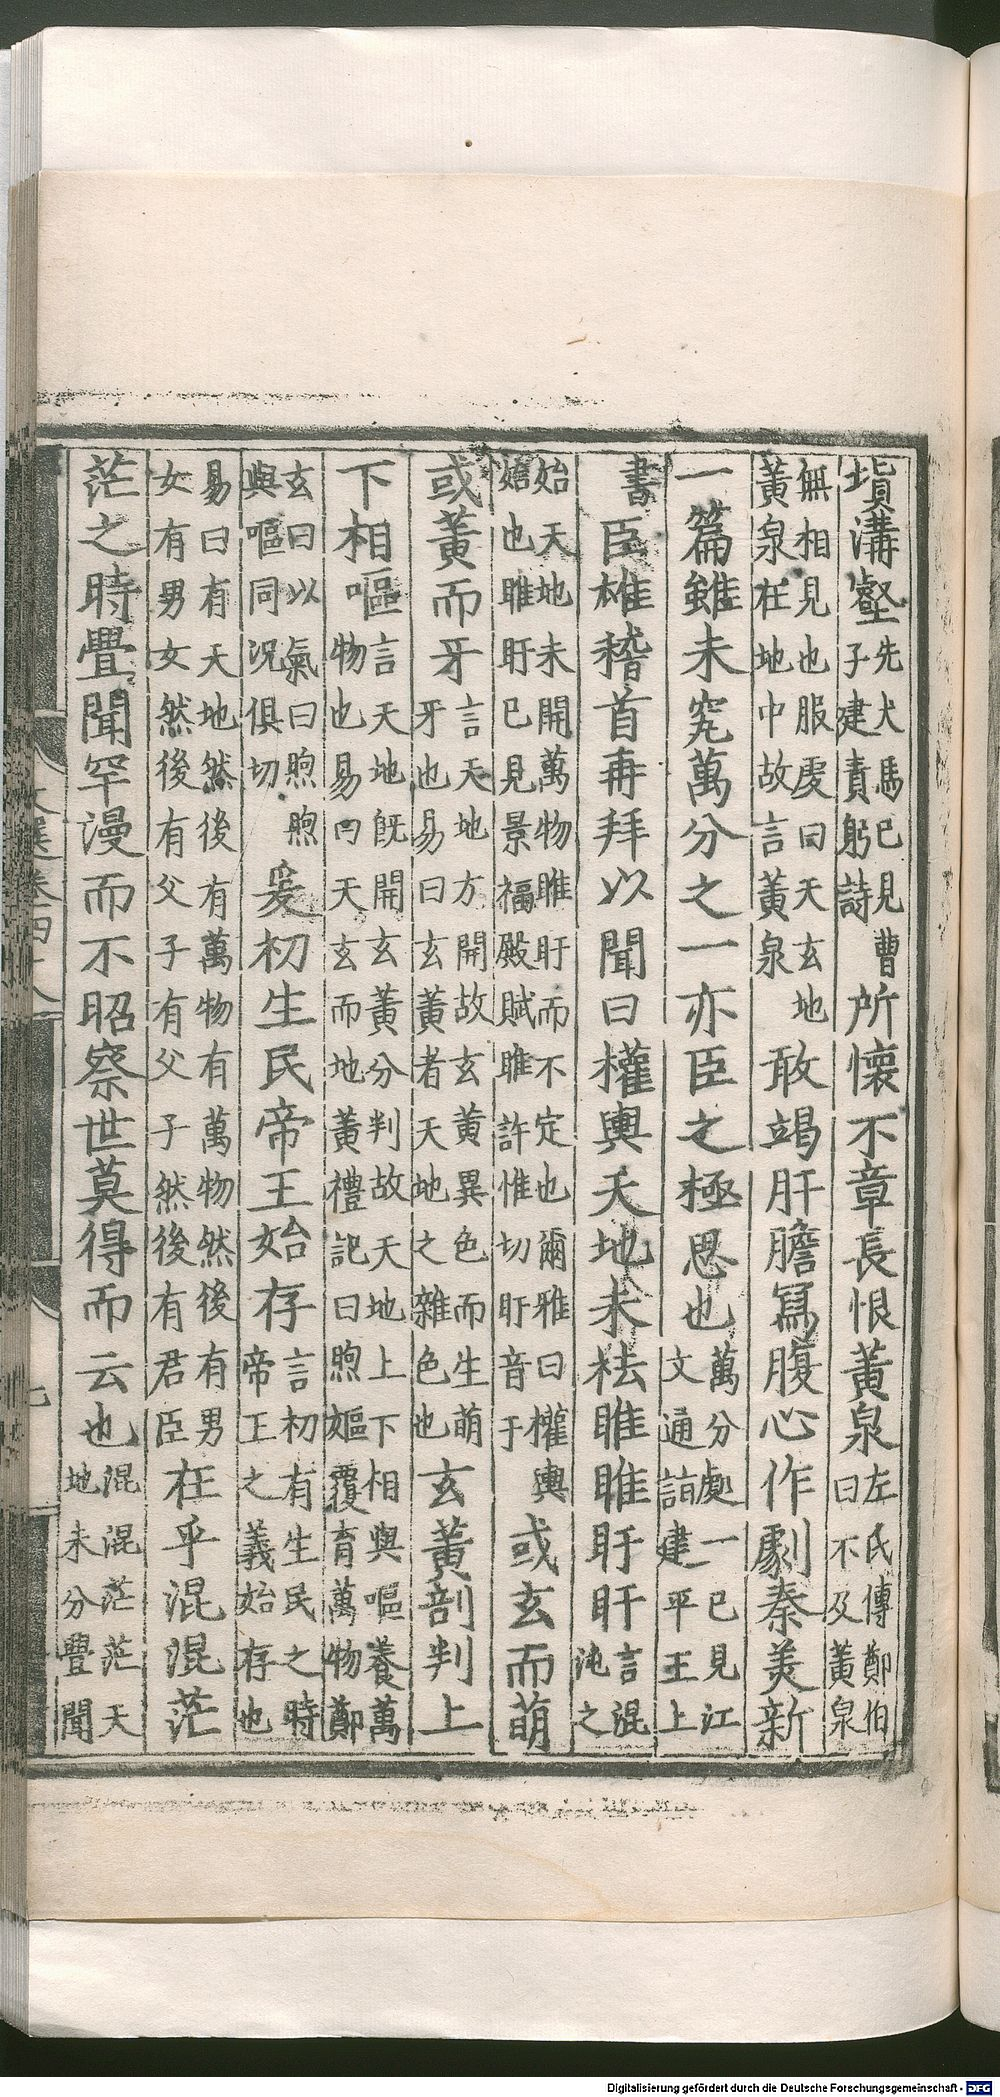 塡溝壑先犬馬已見曹子建責躬詩所懷不章長恨黃泉左氏傳鄭伯曰不及黃泉
無相見也服虔曰天玄地黃泉在地中故言黃泉敢竭肝膽寫腹心作劇秦美新
一篇雖未究萬分之一亦臣之極思也萬分處一已見江文通詣建平王上
書臣雄稽首再拜以聞曰權輿天地未袪睢睢盱盱言混沌之
始天地未開萬物睢盱而不定也爾雅曰權輿嬉也睢盱已見景福殿賦睢許惟切盱音于或玄而萌
或黃而牙言天地方開故玄黃異色而生萌牙也易曰玄黃者天地之雜色也玄黃剖判上
下相嘔言天地旣開玄黃分判故天地上下相與嘔養萬物也易曰天玄而地黃禮記曰煦嫗覆育萬物鄭
玄曰以氣曰煦煦與嘔同況俱切爰初生民帝王始存言初有生民之時帝王之義始存也
易曰有天地然後有萬物有萬物然後有男女有男女然後有父子有父子然後有君臣在乎混混茫
茫之時舋聞罕漫而不昭察世莫得而云也混混茫茫天地未分舋聞
文選卷四十八
Digitalisierung gefördert durch die Deutsche Forschungsgemeinschaft - DFG